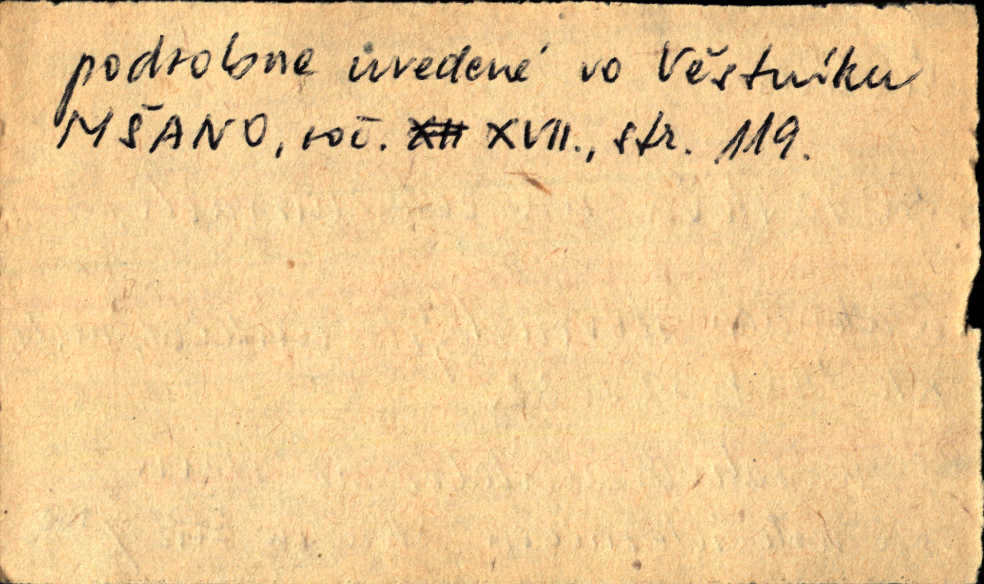 podrobne uvedené vo Věstníku
MŠANO, roč. XVII., str. 119.